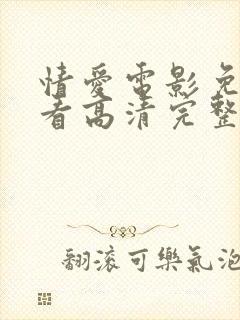 情愛電影免
看高清完整
翻滾可樂氣泡